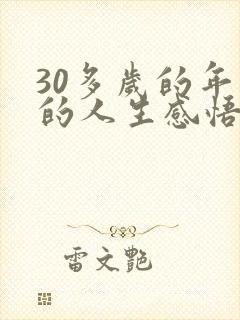 30多歲的年
的人生感悟
雷文艷